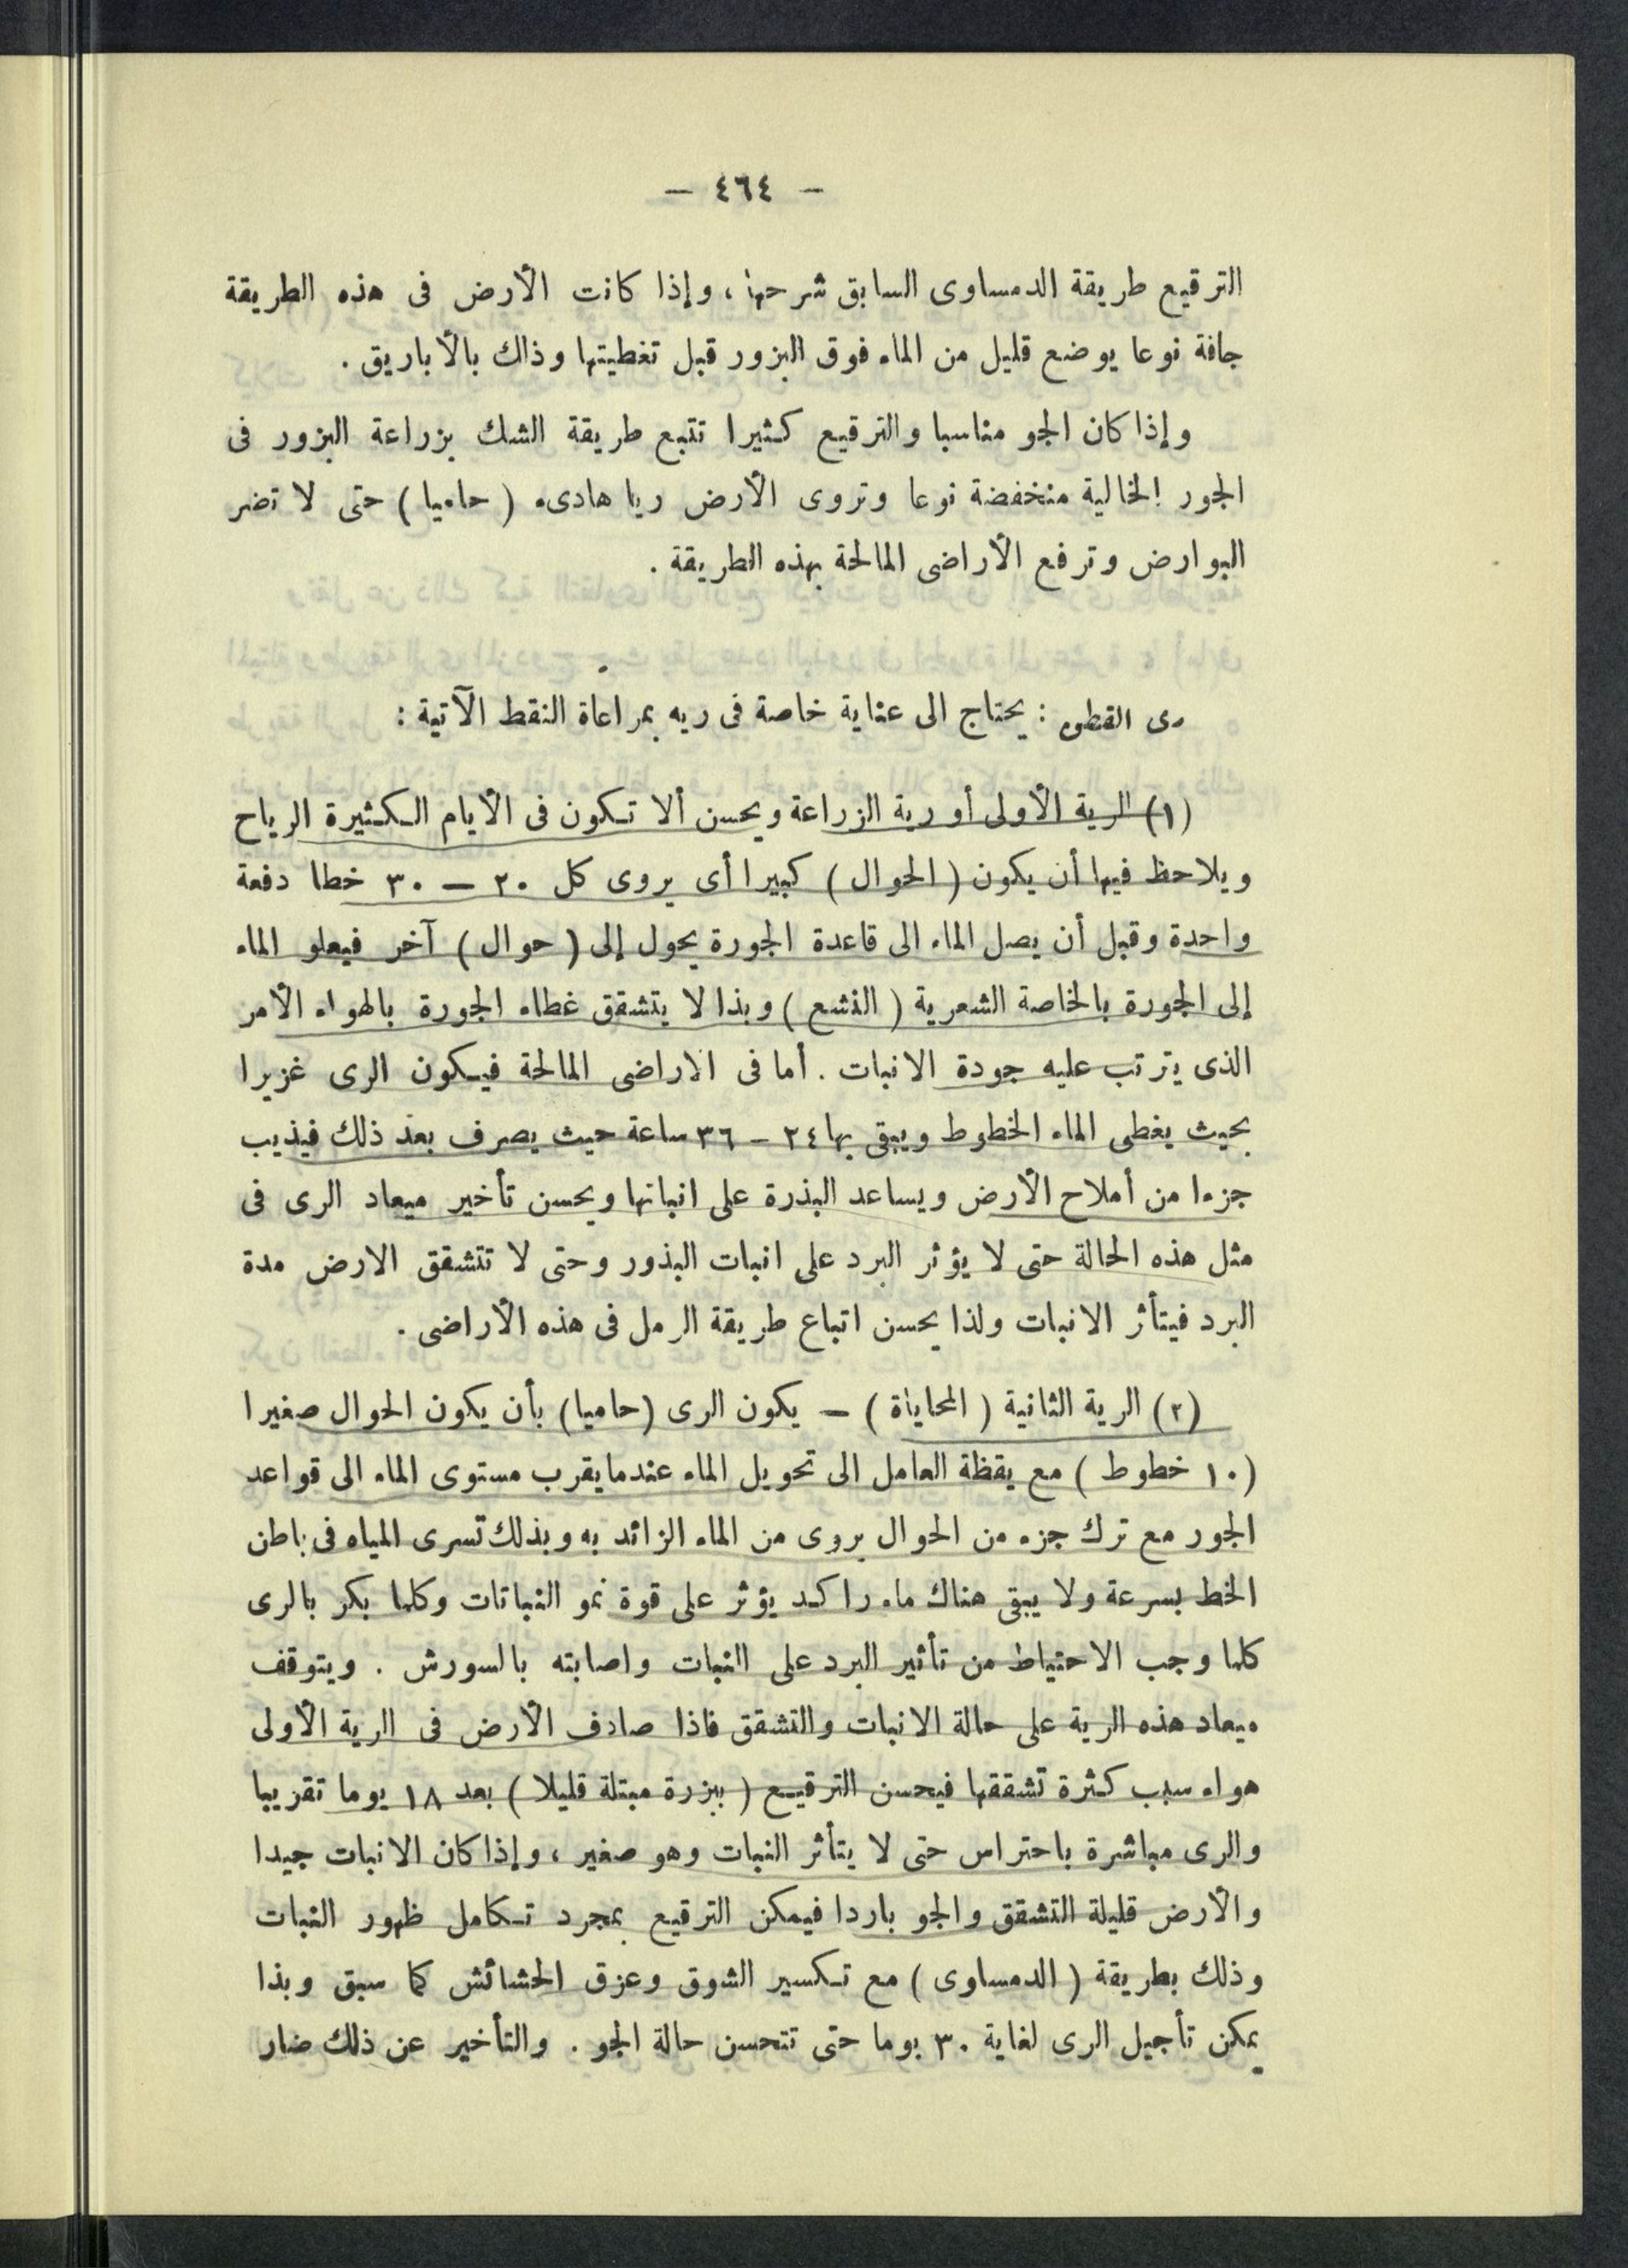 — ٤٦٤ —
الترقيع طريقة الدمساوى السابق شرحها ، وإذا كانت الأرض فى هذه الطريقة
جافة نوعا يوضع قليل من الماء فوق البزور قبل تغطيتها وذاك بالأباريق .
وإذا كان الجو مناسبا والترقيع كثيرا تتبع طريقة الشك بزراعة البزور فى
الجور الخالية منخفضة نوعا وتروى الأرض ريا هادىء ( حاميا ) حتى لا تضر
البوارض وترفع الأراضى المالحة بهذه الطريقة .
رى القطن : يحتاج الى عناية خاصة فى ريه بمراعاة النقط الآتية :
(١) الرية الأولى أو رية الزراعة ويحسن ألا تكون فى الأيام الكثيرة الرياح
ويلاحظ فيها أن يكون ( الحوال ) كبيرا أى يروى كل ٢٠ — ٣٠ خطا دفعة
واحدة وقبل أن يصل الماء الى قاعدة الجورة يحول إلى ( حوال ) آخر فيعلو الماء
إلى الجورة بالخاصة الشعرية ( النشع ) وبذا لا يتشقق غطاء الجورة بالهواء الأمر
الذى يترتب عليه جودة الانبات . أما فى الاراضى المالحة فيكون الرى غزيرا
بحيث يغطى الماء الخطوط ويبقى بها ٢٤ — ٣٦ ساعة حيث يصرف بعد ذلك فيذيب
جزءا من أملاح الأرض ويساعد البذرة على انباتها ويحسن تأخير ميعاد الرى فى
مثل هذه الحالة حتى لا يؤثر البرد على انبات البذور وحتى لا تتشقق الارض مدة
البرد فيتأثر الانبات ولذا يحسن اتباع طريقة الرمل فى هذه الأراضى .
(٢) الرية الثانية ( المحاياة ) — يكون الرى (حاميا) بأن يكون الحوال صغيرا
(١٠ خطوط ) مع يقظة العامل الى تحويل الماء عندما يقرب مستوى الماء الى قواعد
الجور مع ترك جزء من الحوال يروى من الماء الزائد به وبذلك تسرى المياه فى باطن
الخط بسرعة ولا يبقى هناك ماء راكد يؤثر على قوة نمو النباتات وكلما بكر بالرى
كلما وجب الاحتياط من تأثير البرد على النبات واصابته بالسورش . ويتوقف
ميعاد هذه الرية على حالة الانبات والتشقق فاذا صادف الأرض فى الرية الأولى
هواء سبب كثرة تشققها فيحسن الترقيع ( ببزرة مبتلة قليلا ) بعد ١٨ يوما تقريبا
والرى مباشرة باحتراس حتى لا يتأثر النبات وهو صغير ، وإذا كان الانبات جيدا
والأرض قليلة التشقق والجو باردا فيمكن الترقيع بمجرد تكامل ظهور النبات
وذلك بطريقة ( الدمساوى ) مع تكسير الشوق وعزق الحشائش كما سبق وبذا
يمكن تأجيل الرى لغاية ٣٠ يوما حتى تتحسن حالة الجو . والتأخير عن ذلك ضار